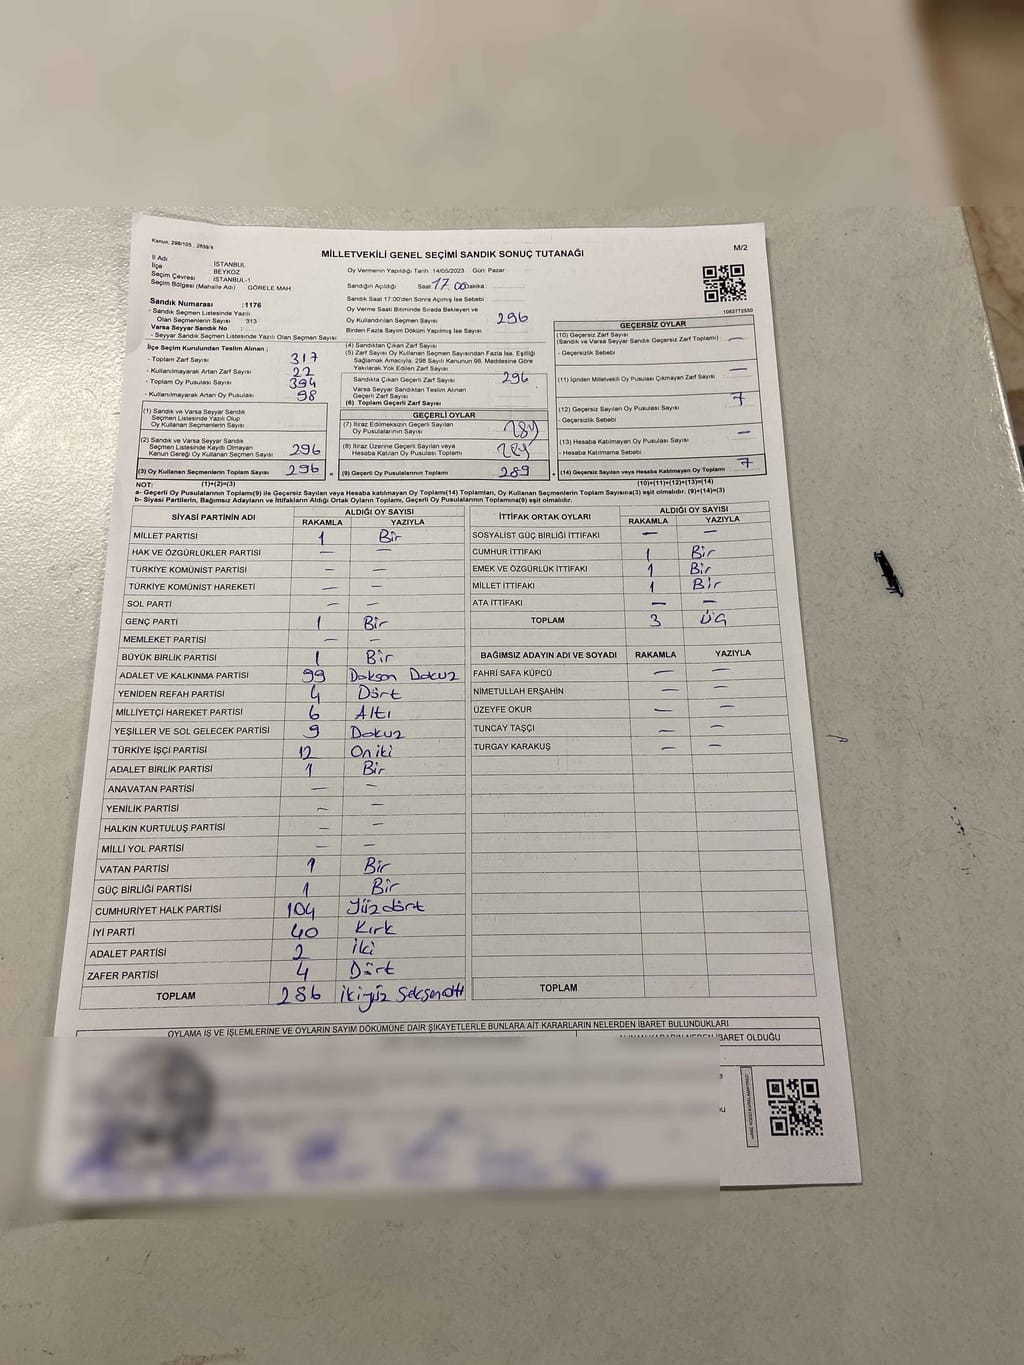 Kanun, 298/105, 2839/4
M/2
MİLLETVEKİLİ GENEL SEÇİMİ SANDIK SONUÇ TUTANAĞI
İl Adı : İSTANBUL
İlçe BEYKOZ
Seçim Çevresi İSTANBUL-1
Seçim Bölgesi (Mahalle Adı) GÖRELE MAH.
Sandık Numarası :1176
- Sandık Seçmen Listesinde Yazılı
Olan Seçmenlerin Sayısı 313
Varsa Seyyar Sandık No :
- Seyyar Sandık Seçmen Listesinde Yazılı Olan Seçmen Sayısı
İlçe Seçim Kurulundan Teslim Alınan ;
- Toplam Zarf Sayısı 317
- Kullanılmayarak Artan Zarf Sayısı 22
- Toplam Oy Pusulası Sayısı 394
- Kullanılmayarak Artan Oy Pusulası Sayısı 98
(1) Sandık ve Varsa Seyyar Sandık
Seçmen Listesinde Yazılı Olup
Oy Kullanan Seçmen Sayısı
(2) Sandık ve Varsa Seyyar Sandık
Seçmen Listesinde Kayıtlı Olmayan
Kanun Gereği Oy Kullanan Seçmen Sayısı 296
(3) Oy Kullanan Seçmenlerin Toplam Sayısı 296
Oy Vermenin Yapıldığı Tarih :14/05/2023 Gün: Pazar
Sandığın Açıldığı Saat:17.00 Dakika :
Sandık Saat 17:00'den Sonra Açılmış İse Sebebi
Oy Verme Saati Bitiminde Sırada Bekleyen ve
Oy Kullandırılan Seçmen Sayısı 296
Birden Fazla Sayım Döküm Yapılmış İse Sayısı
(4) Sandıktan Çıkan Zarf Sayısı
(5) Zarf Sayısı Oy Kullanan Seçmen Sayısından Fazla İse, Eşitliği
Sağlamak Amacıyla, 298 Sayılı Kanunun 98. Maddesine Göre
Yakılarak Yok Edilen Zarf Sayısı
Sandıkta Çıkan Geçerli Zarf Sayısı 296
Varsa Seyyar Sandıktan Teslim Alınan
Geçerli Zarf Sayısı
(6) Toplam Geçerli Zarf Sayısı
GEÇERLİ OYLAR
(7) İtiraz Edilmeksizin Geçerli Sayılan
Oy Pusulalarının Sayısı
(8) İtiraz Üzerine Geçerli Sayılan veya
Hesaba Katılan Oy Pusulası Toplamı
= (9) Geçerli Oy Pusulalarının Toplamı 289
1083772550
GEÇERSİZ OYLAR
(10) Geçersiz Zarf Sayısı
(Sandık ve Varsa Seyyar Sandık Geçersiz Zarf Toplamı) —
- Geçersizlik Sebebi
(11) İçinden Milletvekili Oy Pusulası Çıkmayan Zarf Sayısı —
(12) Geçersiz Sayılan Oy Pusulası Sayısı 7
- Geçersizlik Sebebi
(13) Hesaba Katılmayan Oy Pusulası Sayısı —
- Hesaba Katılmama Sebebi
+ (14) Geçersiz Sayılan veya Hesaba Katılmayan Oy Toplamı 7
NOT: (1)+(2)=(3) (10)+(11)+(12)+(13)=(14)
a- Geçerli Oy Pusulalarının Toplamı(9) ile Geçersiz Sayılan veya Hesaba katılmayan Oy Toplamı(14) Toplamları, Oy Kullanan Seçmenlerin Toplam Sayısına(3) eşit olmalıdır. (9)+(14)=(3)
b- Siyasi Partilerin, Bağımsız Adayların ve İttifakların Aldığı Ortak Oyların Toplamı, Geçerli Oy Pusulalarının Toplamına(9) eşit olmalıdır.
SİYASİ PARTİNİN ADI ALDIĞI OY SAYISI
RAKAMLA YAZIYLA
MİLLET PARTİSİ 1 Bir
HAK VE ÖZGÜRLÜKLER PARTİSİ — —
TÜRKİYE KOMÜNİST PARTİSİ — —
TÜRKİYE KOMÜNİST HAREKETİ — —
SOL PARTİ — —
GENÇ PARTİ 1 Bir
MEMLEKET PARTİSİ — —
BÜYÜK BİRLİK PARTİSİ 1 Bir
ADALET VE KALKINMA PARTİSİ 99 Doksan Dokuz
YENİDEN REFAH PARTİSİ 4 Dört
MİLLİYETÇİ HAREKET PARTİSİ 6 Altı
YEŞİLLER VE SOL GELECEK PARTİSİ 9 Dokuz
TÜRKİYE İŞÇİ PARTİSİ 12 On iki
ADALET BİRLİK PARTİSİ 1 Bir
ANAVATAN PARTİSİ — —
YENİLİK PARTİSİ — —
HALKIN KURTULUŞ PARTİSİ — —
MİLLİ YOL PARTİSİ — —
VATAN PARTİSİ 1 Bir
GÜÇ BİRLİĞİ PARTİSİ 1 Bir
CUMHURİYET HALK PARTİSİ 104 Yüzdört
İYİ PARTİ 40 Kırk
ADALET PARTİSİ 2 İki
ZAFER PARTİSİ 4 Dört
TOPLAM 286 İkiyüz Seksenaltı
İTTİFAK ORTAK OYLARI ALDIĞI OY SAYISI
RAKAMLA YAZIYLA
SOSYALİST GÜÇ BİRLİĞİ İTTİFAKI — —
CUMHUR İTTİFAKI 1 Bir
EMEK VE ÖZGÜRLÜK İTTİFAKI 1 Bir
MİLLET İTTİFAKI 1 Bir
ATA İTTİFAKI — —
TOPLAM 3 Üç
BAĞIMSIZ ADAYIN ADI VE SOYADI RAKAMLA YAZIYLA
FAHRİ SAFA KÜPCÜ — —
NİMETULLAH ERŞAHİN — —
ÜZEYFE OKUR — —
TUNCAY TAŞÇI — —
TURGAY KARAKUŞ — —
TOPLAM
OYLAMA İŞ VE İŞLEMLERİNE VE OYLARIN SAYIM DÖKÜMÜNE DAİR ŞİKAYETLERLE BUNLARA AİT KARARLARIN NELERDEN İBARET BULUNDUKLARI
İBARET OLDUĞU